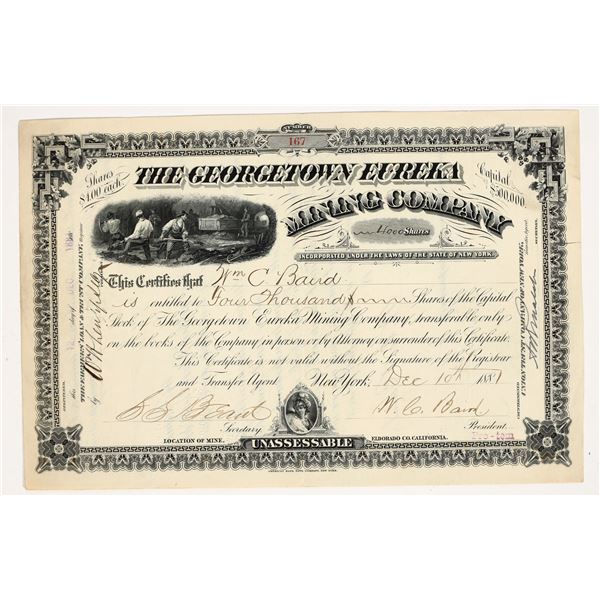 NUMBER
167
Shares $1.00 each.
Capital $500,000.
THE GEORGETOWN EUREKA
MINING COMPANY
4000 Shares
INCORPORATED UNDER THE LAWS OF THE STATE OF NEW YORK.
This Certifies that Wm C. Baird
is entitled to Four Thousand Shares of the Capital
Stock of The Georgetown Eureka Mining Company, transferable only
on the books of the Company in person or by Attorney on surrender of this Certificate.
This Certificate is not valid without the Signature of the Registrar
and Transfer Agent New York, Dec 10th 1881
W. C. Baird
Secretary
President
LOCATION OF MINE.
UNASSESSABLE
ELDORADO CO. CALIFORNIA.